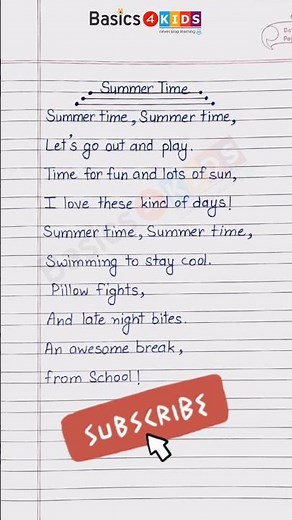 Basics 4 KIDS
never stop learning
Summer Time
Summer time, Summer time,
Let's go out and play.
Time for fun and lots of sun,
I love these kind of days!
Summer time, Summer time,
Swimming to stay cool.
Pillow fights,
And late night bites.
An awesome break,
from School!
SUBSCRIBE